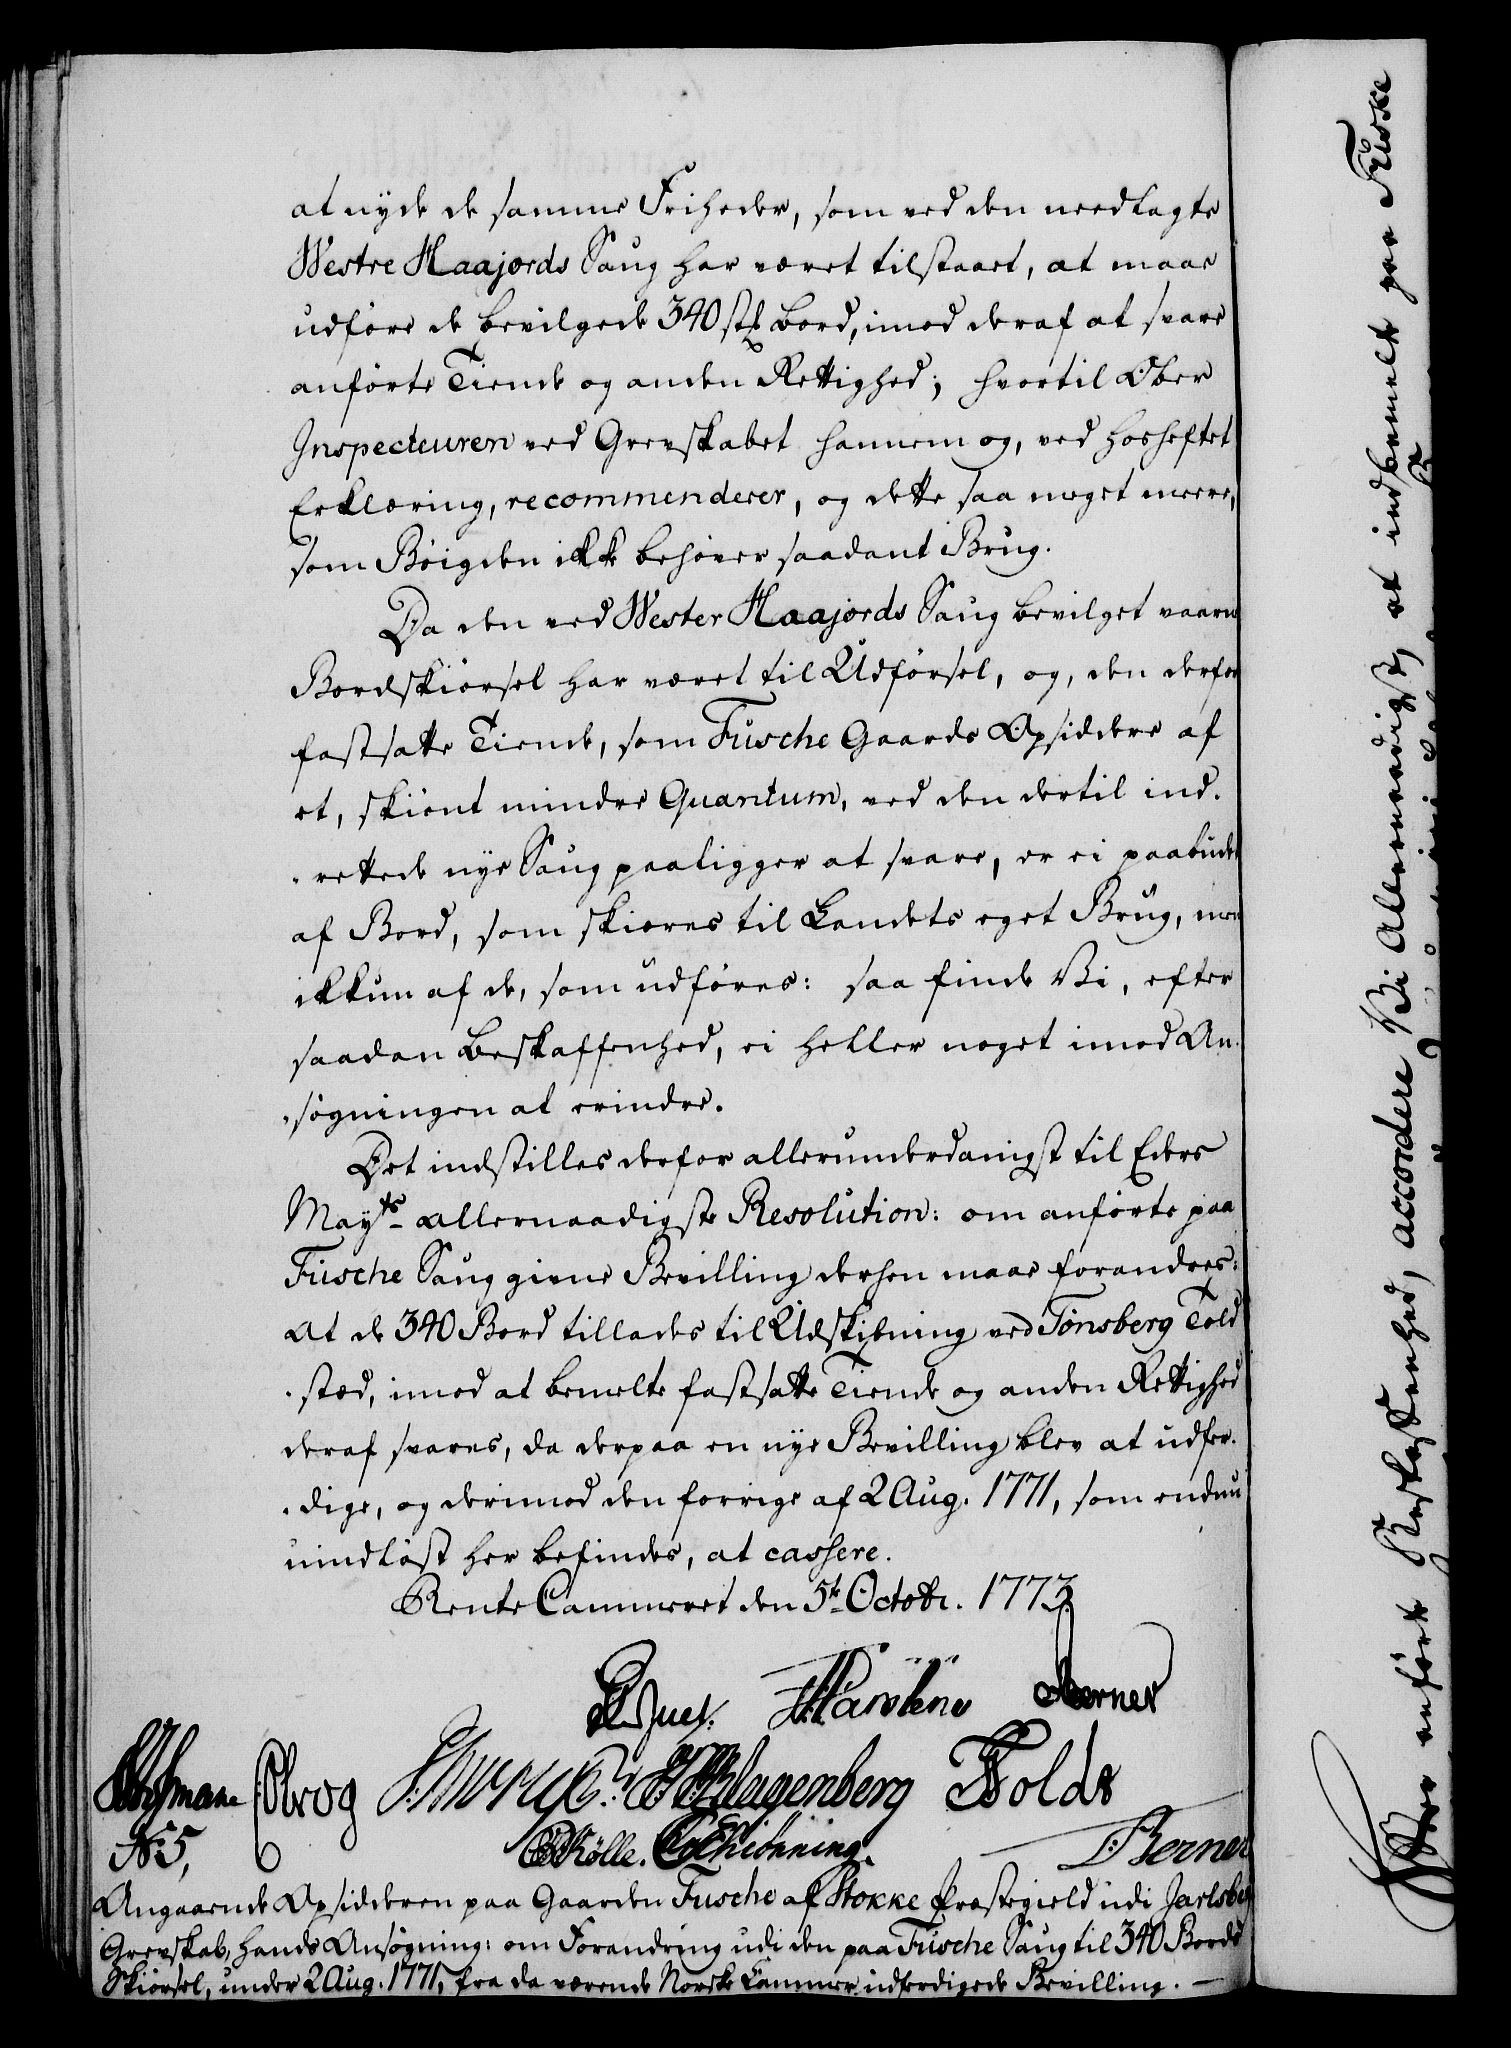 at nyde de samme Friheder, som ved den nedlagte
Westre Haajords Saug har været tilstaaet, at maae
udføre de bevilgede 340 stk Bord, imod deraf at svare
anførte Tiende og anden Rettighed; hvortil Ober
Inspecteuren ved Grevskabet hannem og, ved hosheftet
Erklæring, recommenderer, og dette saa meget meere,
som Bøigden ikke behøver saadant Brug.
Da den ved Wester Haajords Saug bevilget være
Bordskiørsel har været til Udførsel, og, den derfor
fastsatte Tiende, som Fusche Gaards Opsiddere af
et, skiønt mindre Quantum, ved den dertil ind-
-rettede nye Saug paaligger at svare, er ei paabudet
af Bord, som skiæres til Landets eget Brug, men
ikkun af de, som udføres: saa finde Vi, efter
saadan Beskaffenhed, ei heller noget imod An-
-søgningen at erindre.
Det indstilles derfor allerunderdanigst til Eders
Mayts allernaadigste Resolution: om anførte paa
Fusche Saug givne Bevilling derhen maae forandres:
At de 340 Bord tillades til Udskibning ved Tønsberg Told
-stæd, imod at bemelte fastsatte Tiende og anden Rettighed
deraf svares, da derpaa en nye Bevilling blev at udfer-
-dige, og derimod den forrige af 2 Aug. 1771, som endnu
uindløst her befindes, at cassere.
Rente Cammeret den 5te Octobr. 1773.
Juel. Carstens Berner
Hofman Obrog Klagenberg Holde
No 5, Rølle. Skiønning. Berner
Angaaende Opsidderen paa Gaarden Fusche af Stokke Præstegield udi Jarlsberg
Grevskab, hands Ansøgning: om Forandring udi den paa Fusche Saug til 340 Bords
Skiørsel, under 2 Aug. 1771, fra da værende Norske Kammer udferdigede Bevilling.
anførte Beskaffenhed, accordere Vi Allernaadigst, at indbemelte paa Fuske